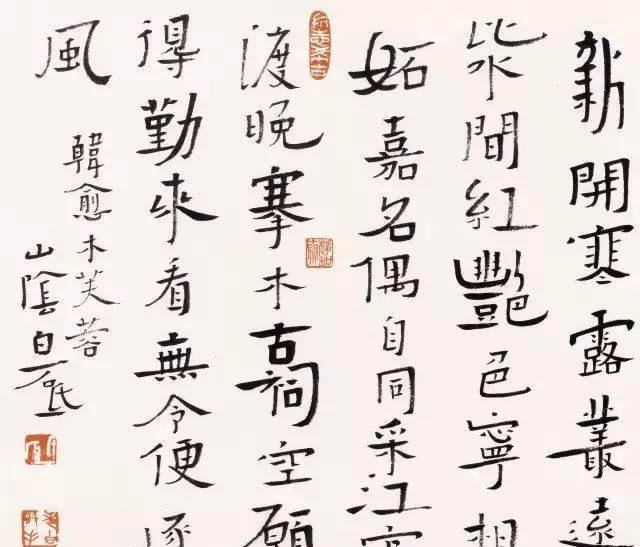 新開寒露叢遠
比水間紅艷色寧相
妬嘉名偶自同采江官
渡晚搴木古祠空願
得勤來看無令便逐
風
韓愈木芙蓉
山陰白